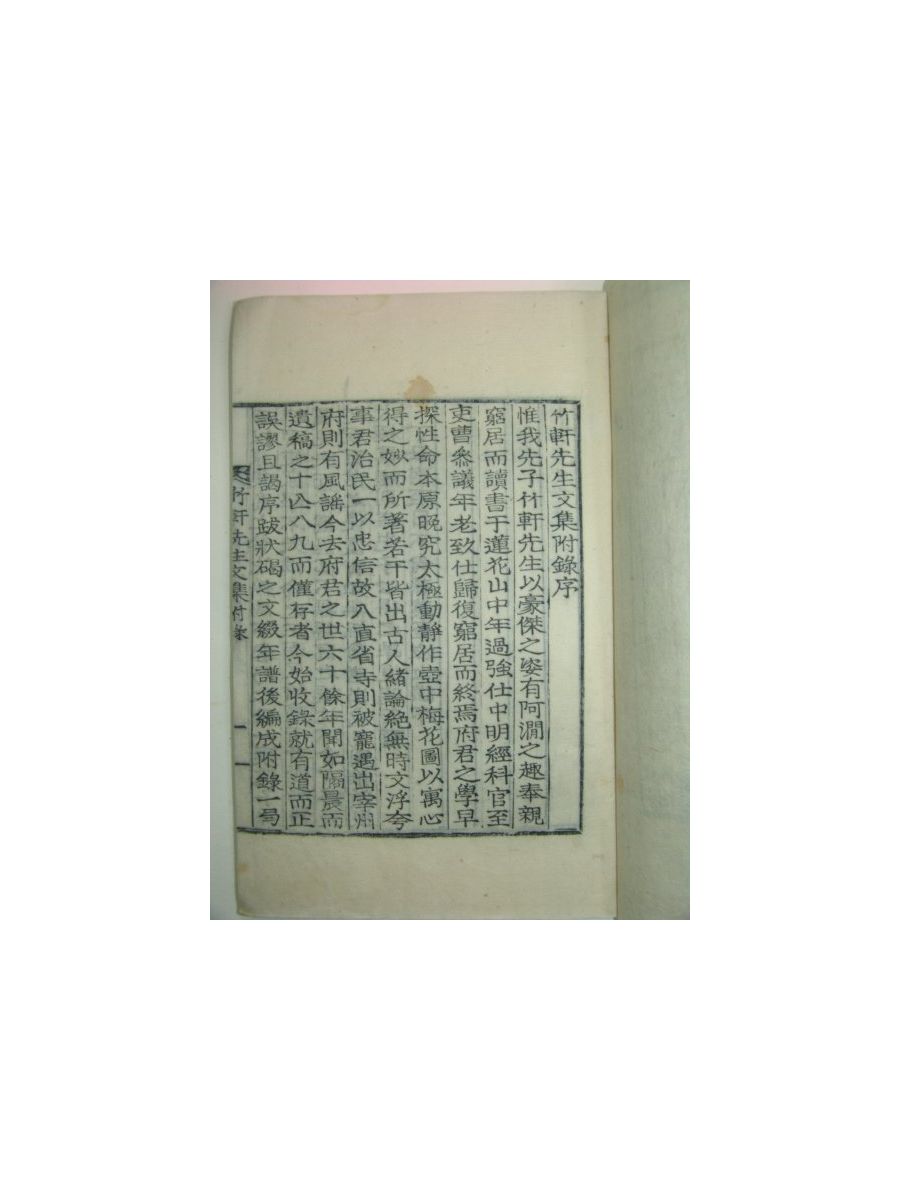 竹軒先生文集附錄序
惟我先子竹軒先生以豪傑之姿有阿澗之趣奉親
窮居而讀書于蓮花山中年過強仕中明經科官至
吏曹參議年老致仕歸復窮居而終焉府君之學早
探性命本原晚究太極動靜作壺中梅花圖以寓心
得之妙而所著若干皆出古人緒論絕無時文浮夸
事君治民一以忠信故入直省寺則被寵遇出宰州
府則有風謠今去府君之世六十餘年聞如隔晨而
遺稿之十亡八九而僅存者今始收錄就有道而正
誤謬且謁序跋狀碣之文綴年譜後編成附錄一局
竹軒先生文集附錄 一